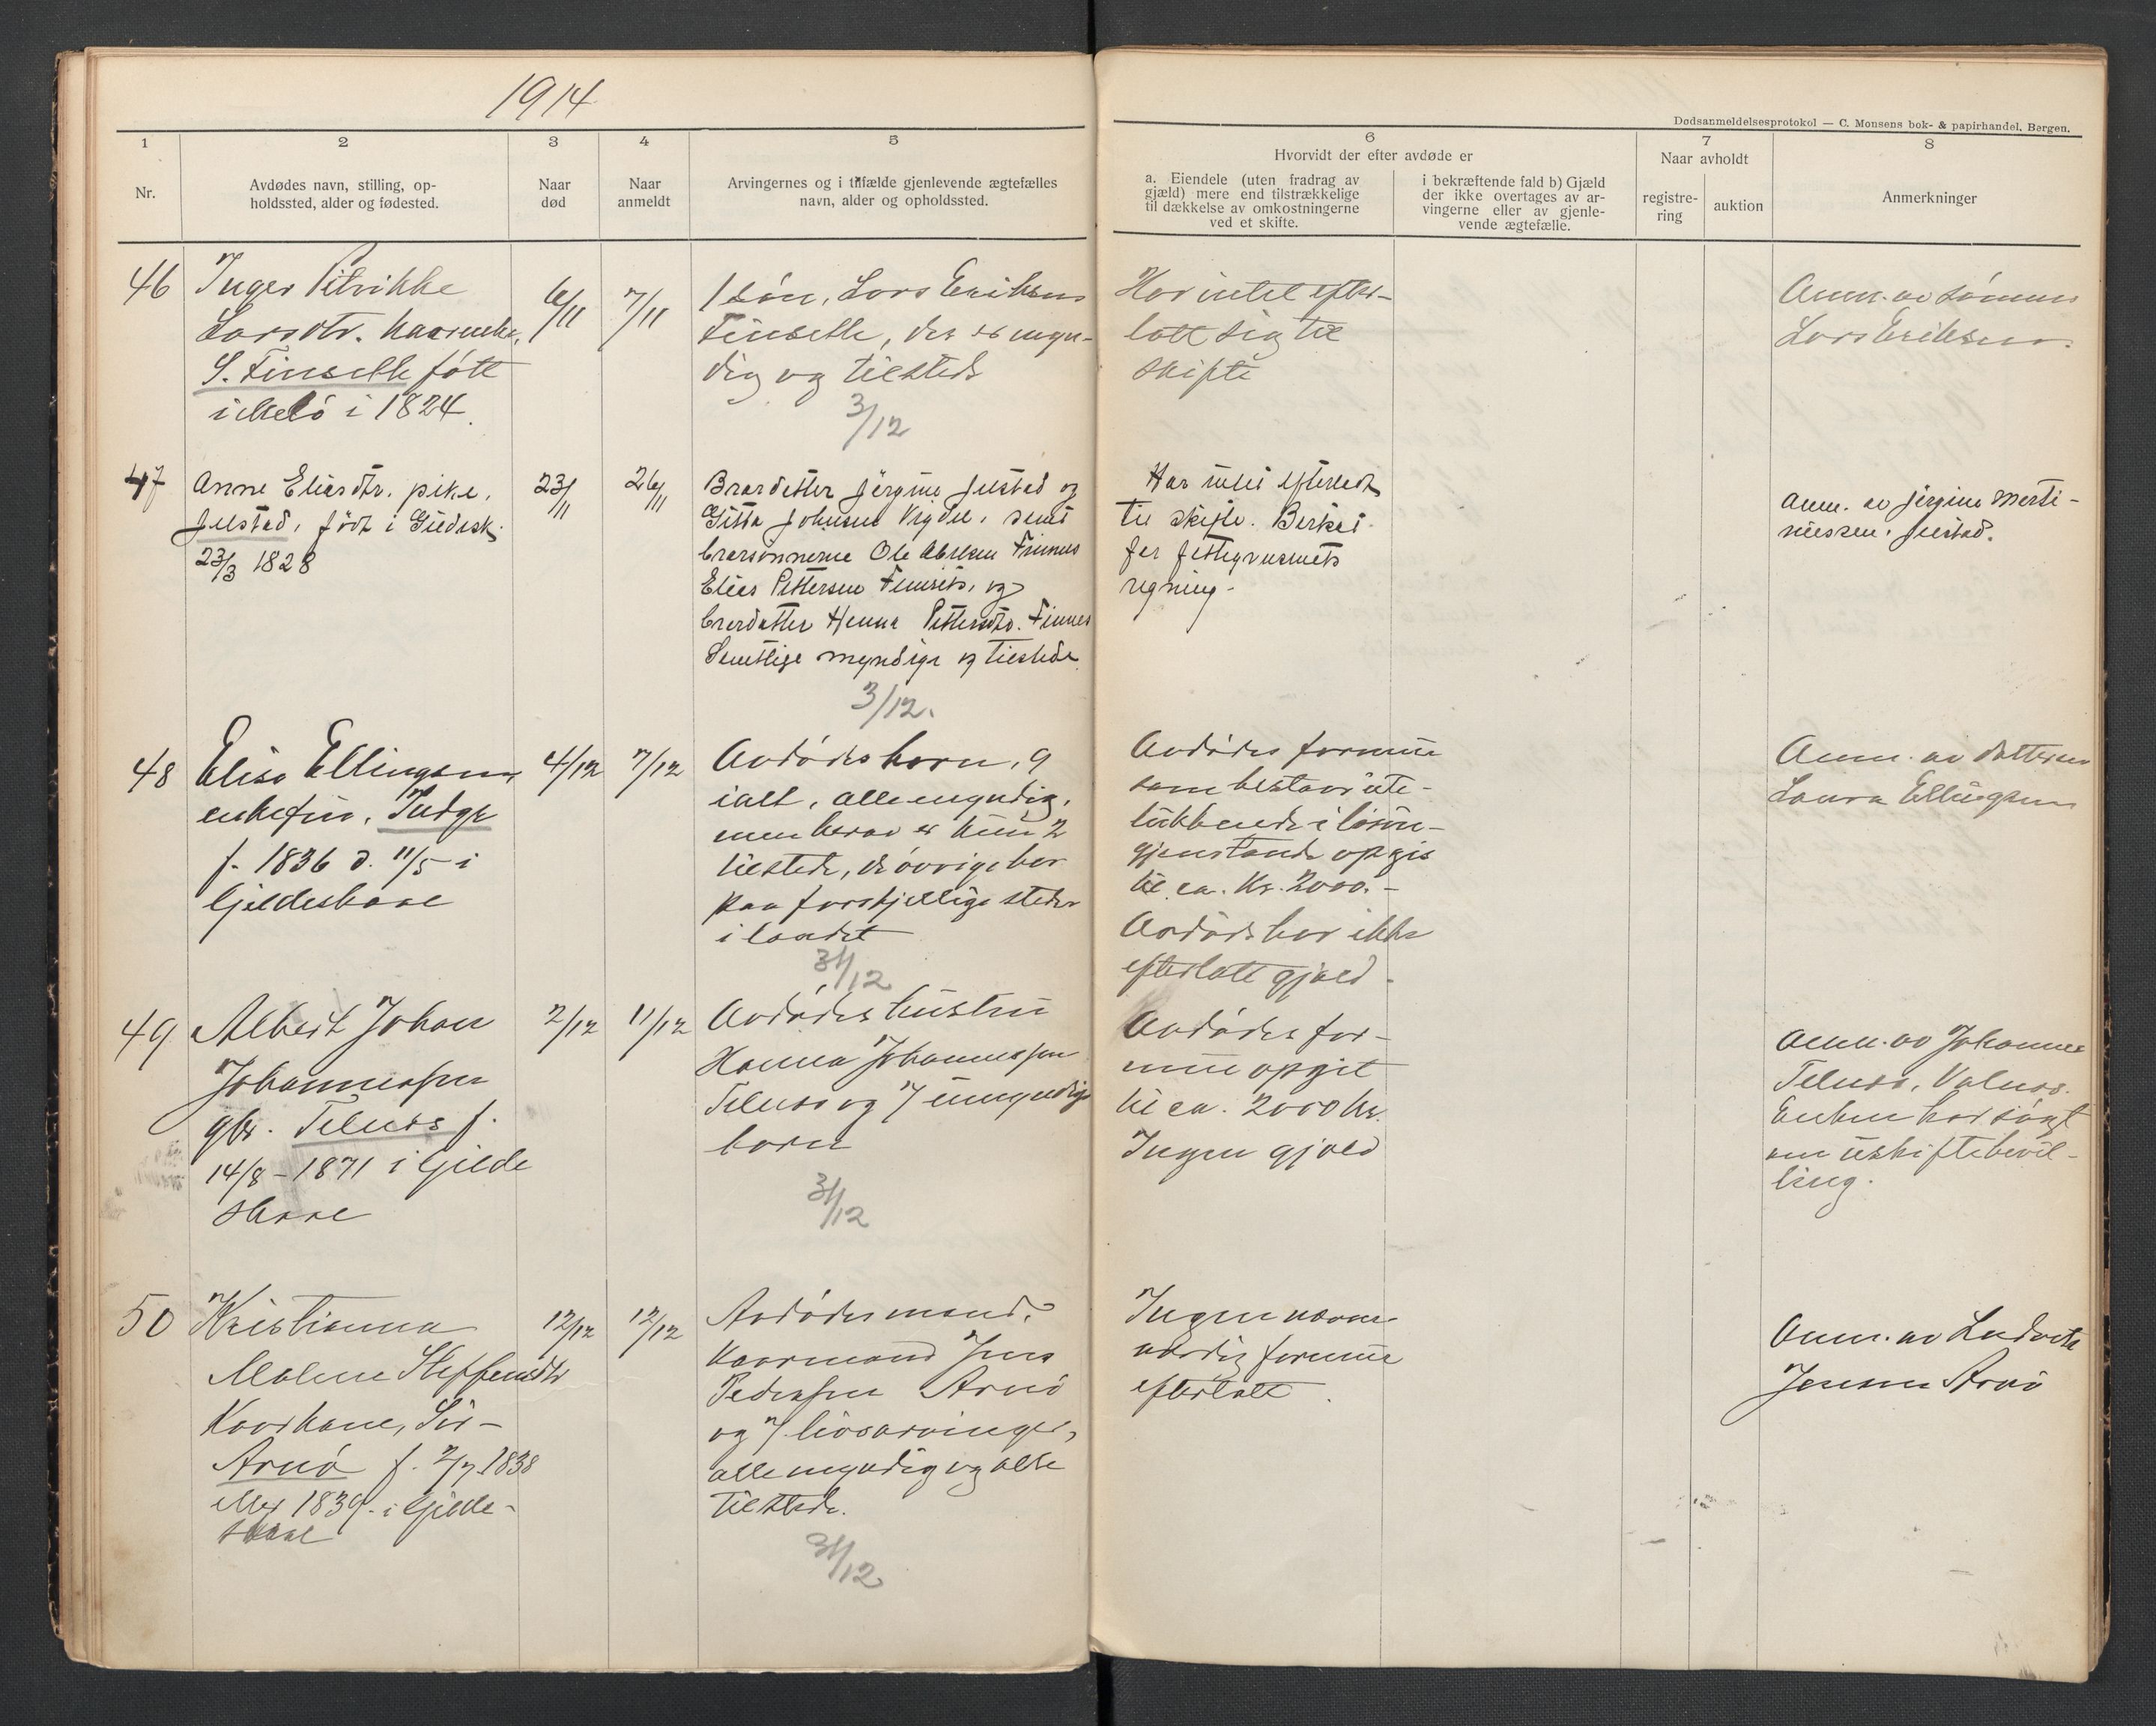 1914
Dødsanmeldelsesprotokol — C. Monsens bok- & papirhandel, Bergen.
1
2
3
4
5
6
7
8
Nr.
Avdødes navn, stilling, op-
holdssted, alder og fødested.
Naar
død
Naar
anmeldt
Arvingernes og i tilfælde gjenlevende ægtefælles
navn, alder og opholdssted.
Hvorvidt der efter avdøde er
a. Eiendele (uten fradrag av
gjæld) mere end tilstrækkelige
til dækkelse av omkostningerne
ved et skifte.
i bekræftende fald b) Gjæld
der ikke overtages av ar-
vingerne eller av gjenle-
vende ægtefælle.
Naar avholdt
registre-
ring
auktion
Anmerkninger
46
Inger Petrikke
Larsdtr.
S. Finseth født
i Melø i 1824.
6/11
7/11
1 søn, Lars Eriksen
Finseth, der er myn-
dig og tilstede
3/12
Har intet efter-
latt sig til
skifte
Anm. av sønnen
Lars Eriksen.
47
Anne Eliasdtr. pike,
Jelstad, født i Gildesk.
23/3 1828
23/11
26/11
Brordatter Jørgine Jelstad og
Gitta Johnsen Vigdel, samt
brorsønnerne Ole Finnes
Elias Pettersen og
brordatter Hanna Pettersdtr. Finnes
Samtlige myndige og tilstede.
3/12.
Har intet efterladt
til skifte.
for fattigvæsenets
regning.
Anm. av Jørgine Marti-
niussen, Jelstad.
48
Elisa Ellingsen
enkefru, Indge
f. 1836 d. 11/5 i
Gildeskaal
4/12
7/12
Avdødes børn, 9
ialt, alle myndig,
men herav er kun 2
tilstede, de øvrige bor
paa forskjellige steder
i landet
31/12
Avdødes formue
som bestaar ute-
lukkende i løsøre-
gjenstande opgis
til ca. Kr. 2000.-
Avdøde har ikke
efterlatt gjæld.
Anm. av datteren
Laura Ellingsen
49
Albert Johan
Johannessen
gbr. Telnes f.
14/8 - 1871 i Gilde
skaal
2/12
11/12
Avdødes hustru
Hanna Johannessen
Telnes og 7 umyndige
børn
31/12
Avdødes for-
mue opgit
til ca. 2000 Kr.
Ingen gjæld
Anm. av Johannes
Telnes,
Enken har søkt
om uskiftebevil-
ling.
50
Kristianna
Malene Steffensdtr
Kaarkone, Sør-
Arnø f. 2/7 1838
eller 1839 i Gilde-
skaal
12/12
12/12
Avdødes mand,
Kaarmand Jens
Pedersen Arnø
og 7 livsarvinger,
alle myndig og alle
tilstede.
31/12
Ingen nævne-
værdig formue
efterlatt.
Anm. av Ludvik
Jensen Arnø